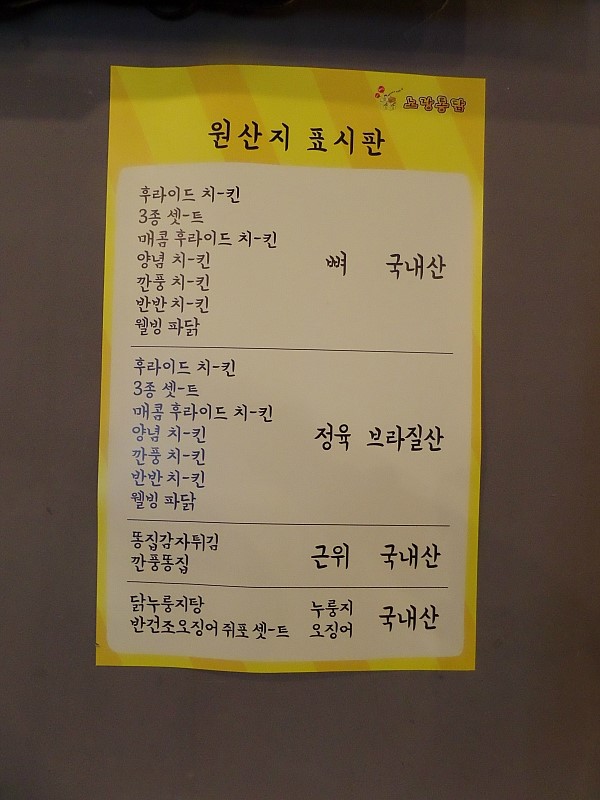 노랑통닭
원산지 표시판
후라이드 치-킨
3종 셋-트
매콤 후라이드 치-킨
양념 치-킨
깐풍 치-킨
반반 치-킨
웰빙 파닭
뼈 국내산
후라이드 치-킨
3종 셋-트
매콤 후라이드 치-킨
양념 치-킨
깐풍 치-킨
반반 치-킨
웰빙 파닭
정육 브라질산
똥집감자튀김
깐풍똥집
근위 국내산
닭누룽지탕 누룽지
반건조오징어 쥐포 셋-트 오징어
국내산